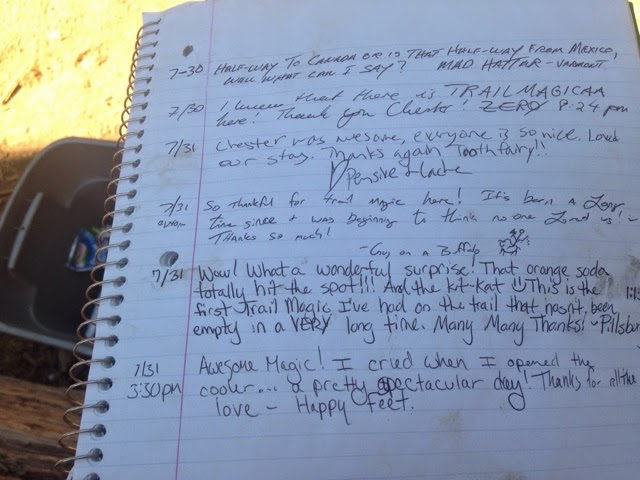 7-30 HALF-WAY TO CANADA OR IS THAT HALF-WAY FROM MEXICO,
WELL WHAT CAN I SAY? MAD HATTER - VARMONT.
7/30 I knew that there is TRAILMAGICAA
here! Thank you Chester! ZERO 8:24 pm
7/31 Chester was awesome, everyone is so nice. Loved
our stay. Thanks again Toothfairy!!
Pensive &
7/31 So Thankful for trail magic here! It's been a Long
time since I was beginning to think no one Loved us!
Thanks So much!
- Guy on a Buffalo
7/31 Wow! What a wonderful surprise! That orange soda
totally hit the spot!!! And the kit-kat This is the
first Trail Magic I've had on the trail that hasn't been
empty in a VERY long time. Many Many Thanks! ~Pillsbu
7/31 Awesome Magic! I cried when I opened the
3:30pm cooler... a pretty spectacular day! Thanks for all the
love - Happy Feet.